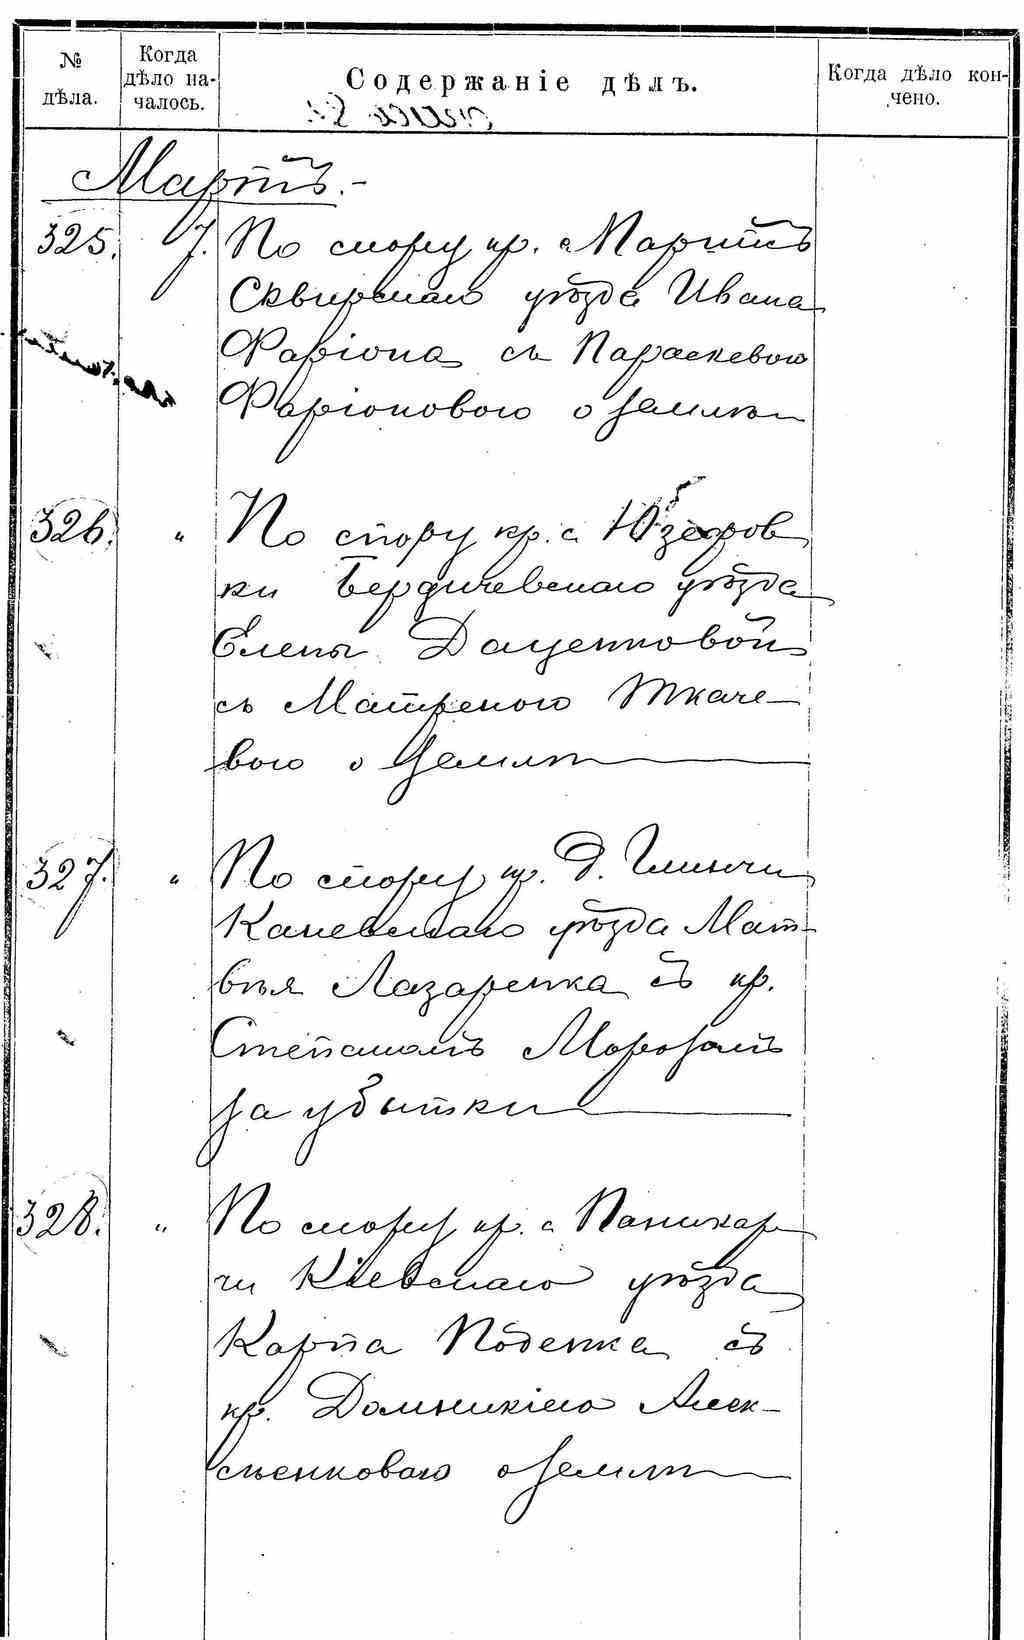 № дѣла.
Когда дѣло началось.
Содержаніе дѣлъ.
Когда дѣло кончено.
Мартъ.-
325. 7. По спору кр. с Мартъ
Сквирскаго уѣзда Ивана
Фаріона съ Параскевою
Фаріоновою о землѣ
326. " По спору кр. с. Юзефов
ки Бердичевскаго уѣзда
Елены Даценковой
съ Матреною Ткаче-
вою о землѣ
327. " По спору кр. д. Глинчи
Каневскаго уѣзда Мат-
вѣя Лазаренка съ кр.
Степаномъ Морозомъ
за убытки
328. " По спору кр. с Паникар
чи Кіевскаго уѣзда
Карпа Поденка съ
кр. Домникіею Алек-
сѣенковою о землѣ